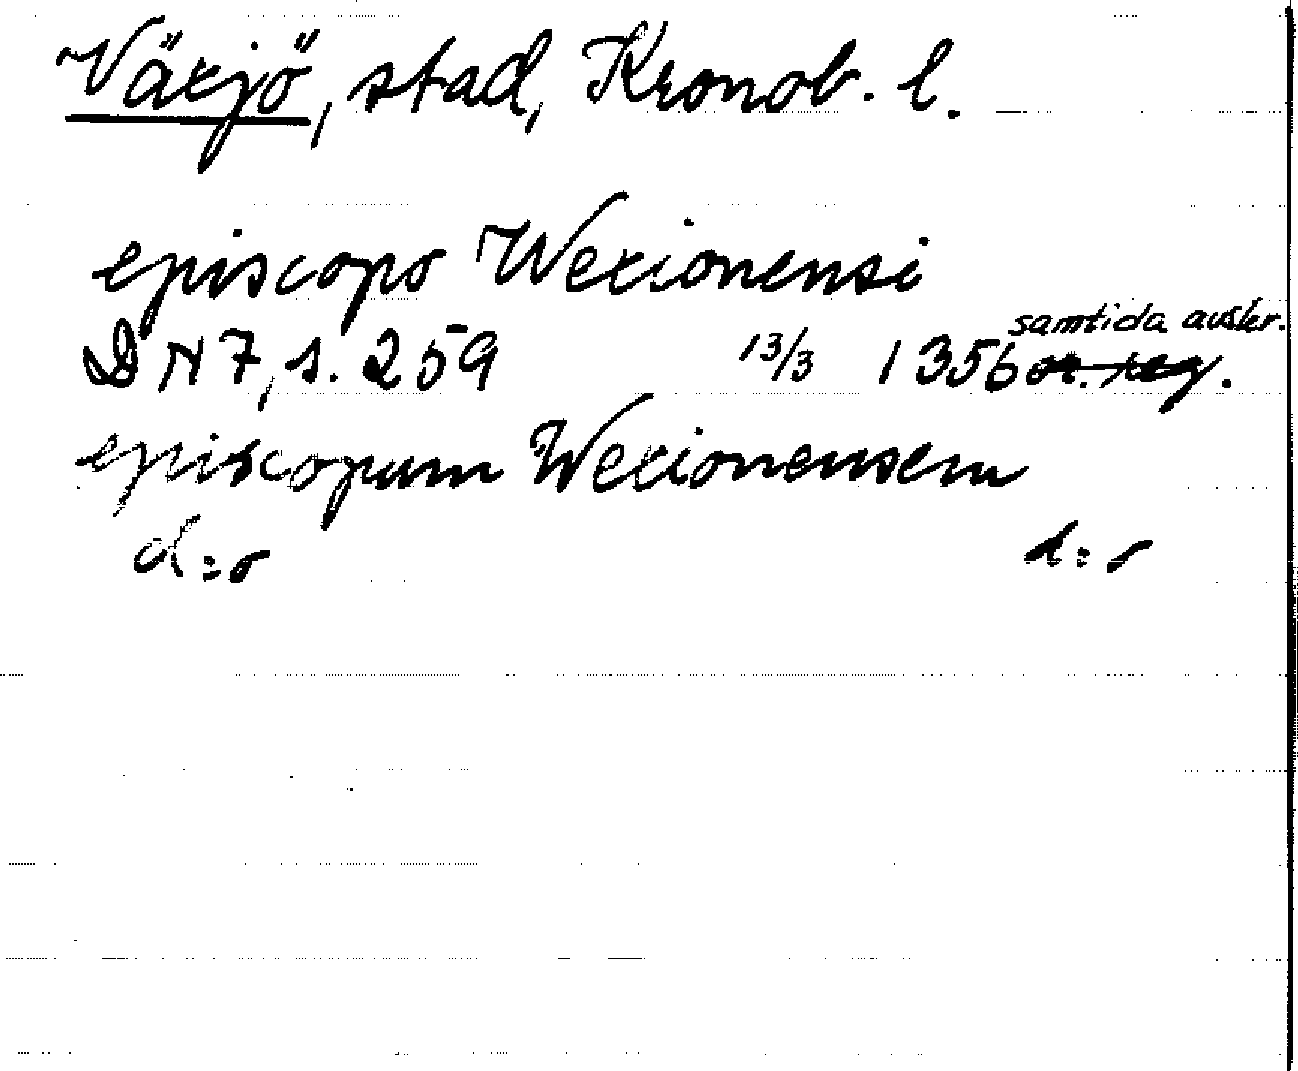 Växjö, stad, Kronob. l.
episcopo Wexionensi
samtida avskr.
DN7, s. 259 13/3 1356 or. reg.
episcopum Wexionensem
d:o d:o